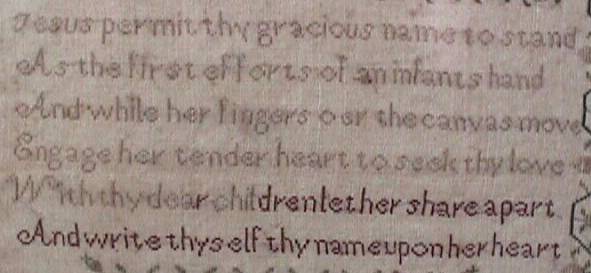 Jesus permit thy gracious name to stand
As the first efforts of an infants hand
And while her fingers oer the canvas move
Engage her tender heart to seek thy love
With thy dear children let her share a part
And write thyself thy name upon her heart